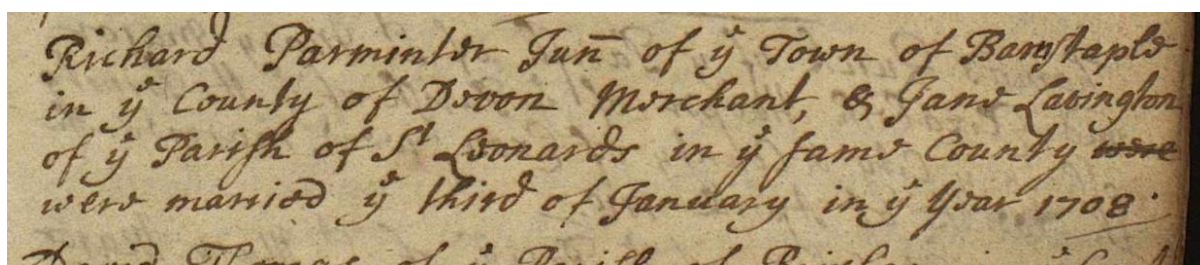 Richard Parminter Junr of ye Town of Barnstaple
in ye County of Devon Merchant, & Jane Lavington
of ye Parish of St Leonards in ye same County were
were married ye third of January in ye Year 1708.
David Thomas of ye Parish of